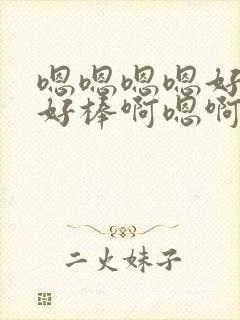 嗯嗯嗯嗯好
好棒啊嗯啊
二火妹子